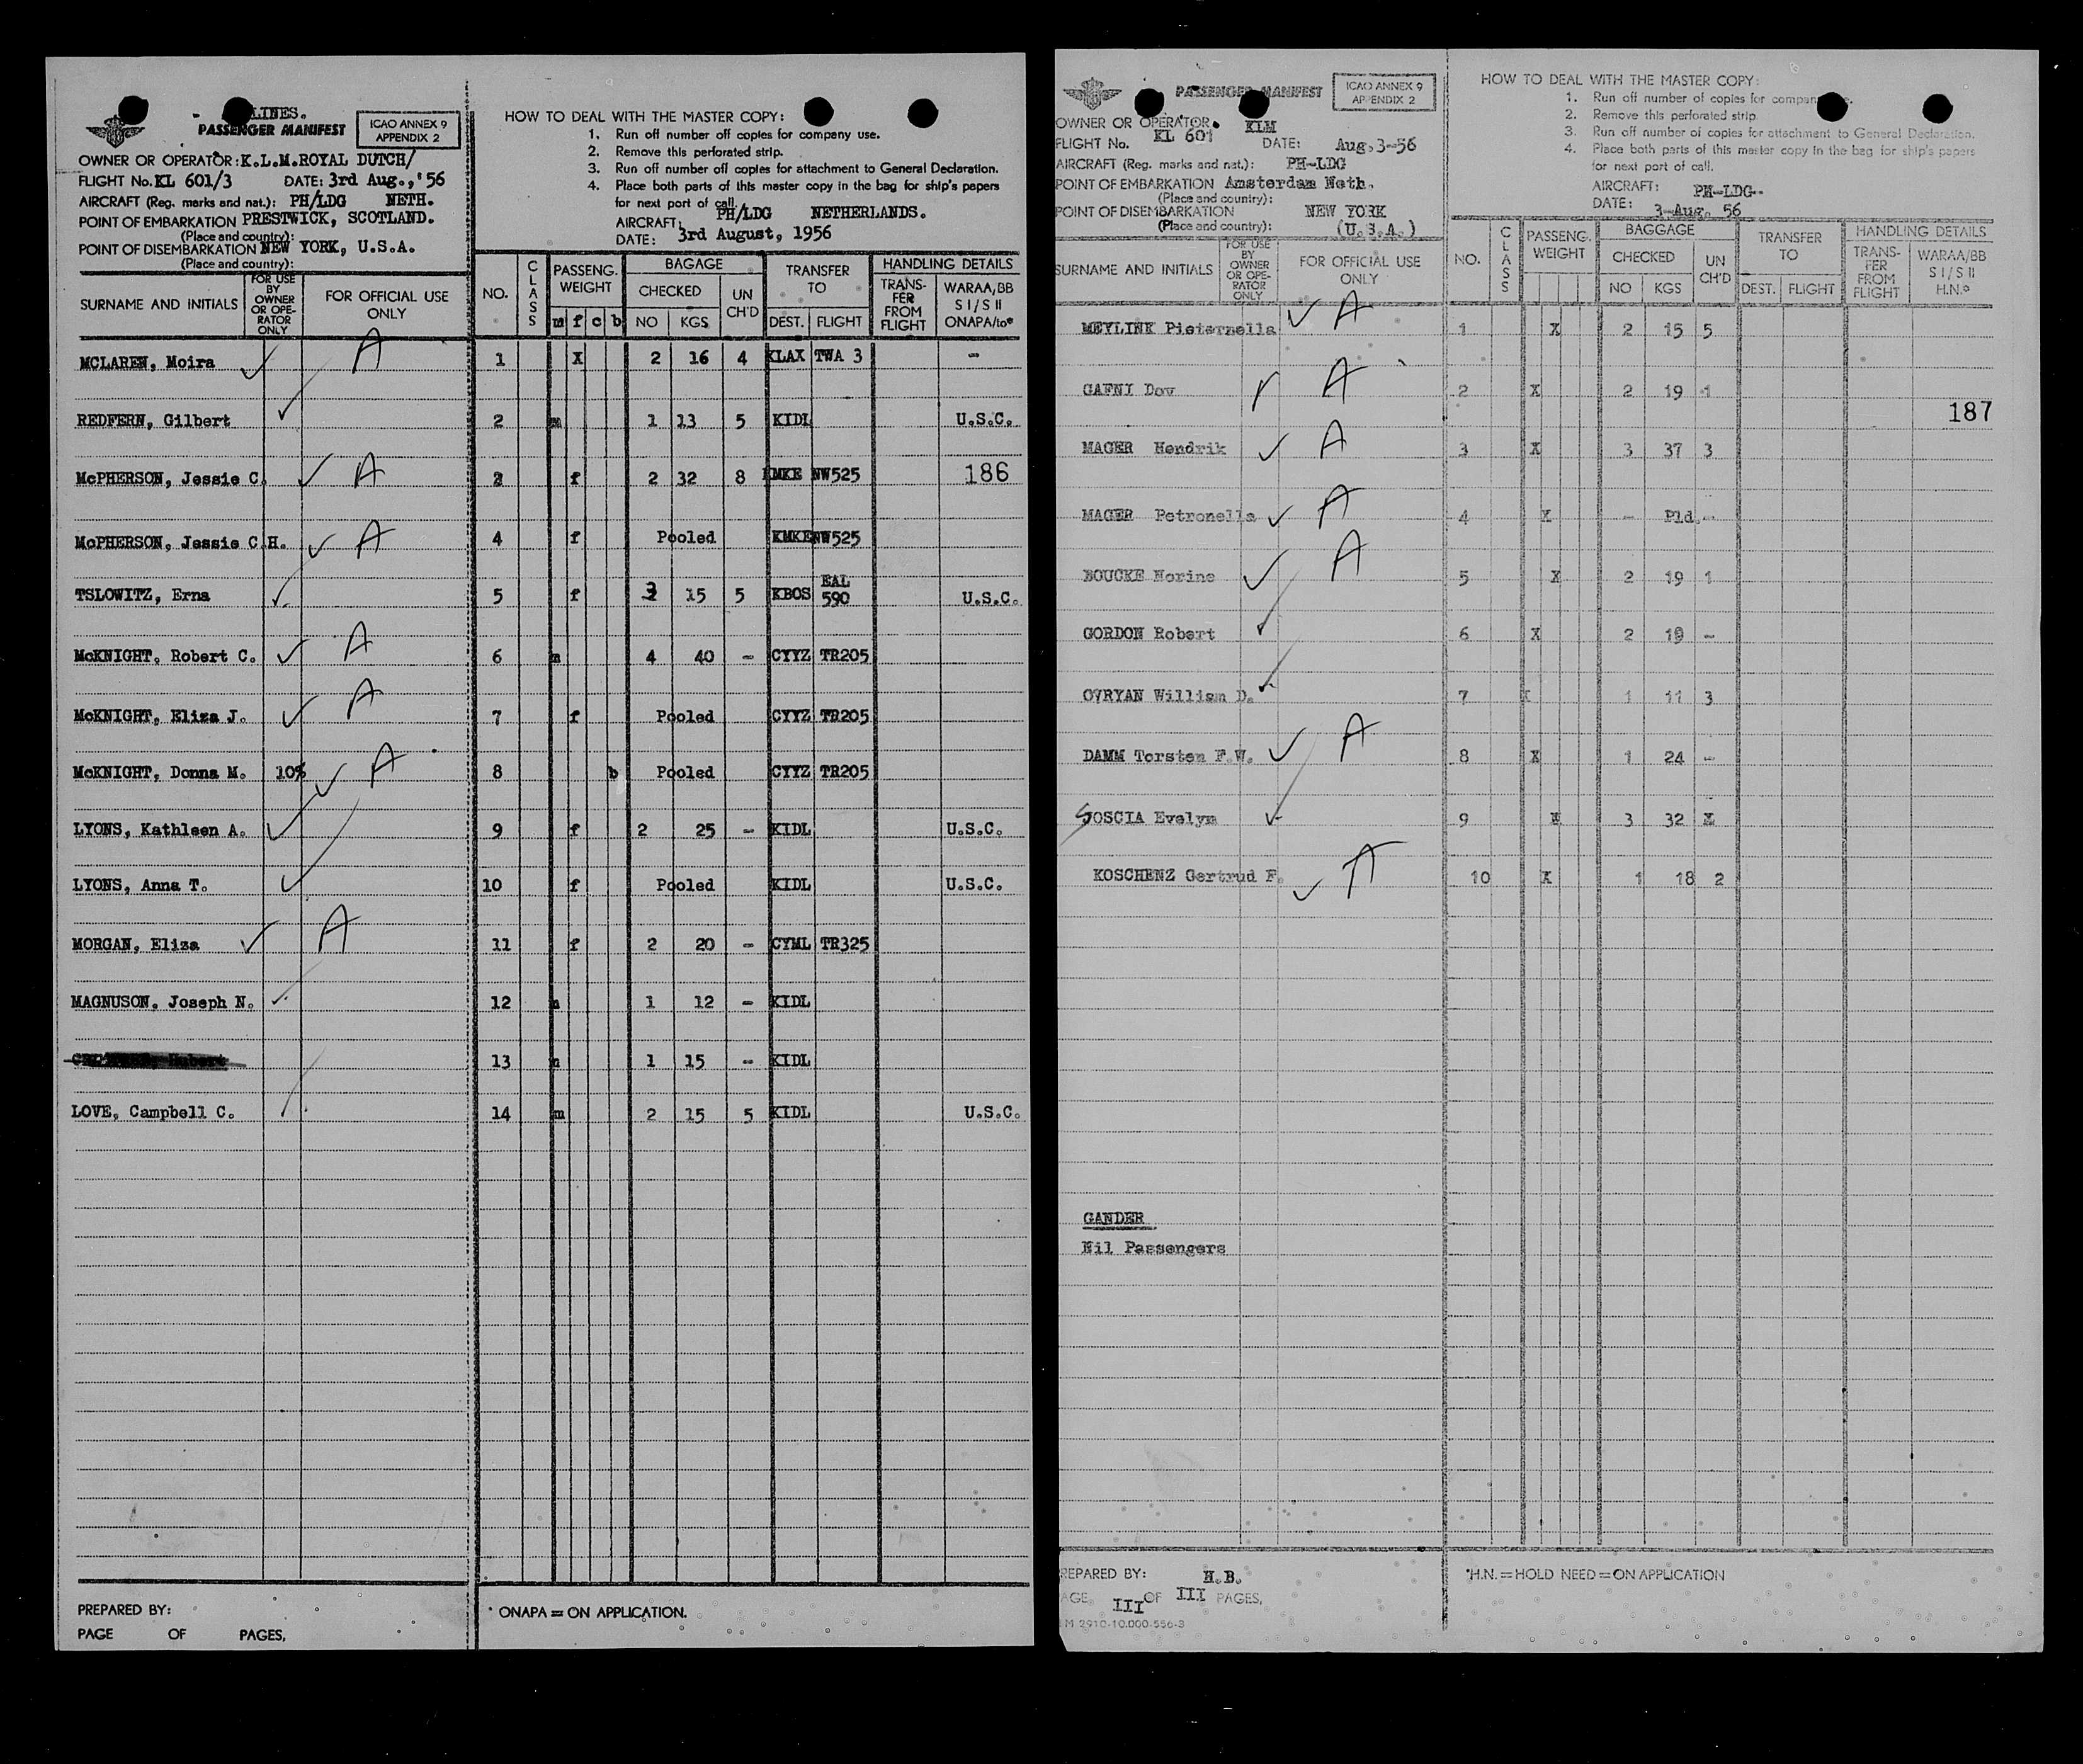 LINES.
PASSENGER MANIFEST
ICAO ANNEX 9
APPENDIX 2
OWNER OR OPERATOR: K.L.M. ROYAL DUTCH/
FLIGHT No. KL 601/3 DATE: 3rd Aug., '56
AIRCRAFT (Reg. marks and nat.): PH/LDG NETH.
POINT OF EMBARKATION PRESTWICK, SCOTLAND.
(Place and country):
POINT OF DISEMBARKATION NEW YORK, U.S.A.
(Place and country):
HOW TO DEAL WITH THE MASTER COPY:
1. Run off number off copies for company use.
2. Remove this perforated strip.
3. Run off number off copies for attachment to General Declaration.
4. Place both parts of this master copy in the bag for ship's papers
for next port of call.
AIRCRAFT: PH/LDG NETHERLANDS.
DATE: 3rd August, 1956
SURNAME AND INITIALS FOR USE BY OWNER OR OPE-RATOR ONLY FOR OFFICIAL USE ONLY NO. CLASS PASSENG. WEIGHT m f c b BAGAGE CHECKED NO KGS UN CH'D TRANSFER TO DEST. FLIGHT HANDLING DETAILS TRANS-FER FROM FLIGHT WARAA/BB S I/S II ONAPA/to*
MCLAREN, Moira A 1 X 2 16 4 KLAX TWA 3 -
REDFERN, Gilbert 2 m 1 13 5 KIDL U.S.C.
McPHERSON, Jessie C. A 3 f 2 32 8 KMKE NW525 186
McPHERSON, Jessie C.H. A 4 f Pooled KMKE NW525
TSLOWITZ, Erna 5 f 3 15 5 KBOS EAL 590 U.S.C.
McKNIGHT, Robert C. A 6 m 4 40 - CYYZ TR205
McKNIGHT, Eliza J. A 7 f Pooled CYYZ TR205
McKNIGHT, Donna M. 10% A 8 b Pooled CYYZ TR205
LYONS, Kathleen A. 9 f 2 25 - KIDL U.S.C.
LYONS, Anna T. 10 f Pooled KIDL U.S.C.
MORGAN, Eliza A 11 f 2 20 - CYML TR325
MAGNUSON, Joseph N. 12 m 1 12 - KIDL
Hubert 13 m 1 15 - KIDL
LOVE, Campbell C. 14 m 2 15 5 KIDL U.S.C.
PREPARED BY:
PAGE OF PAGES,
* ONAPA = ON APPLICATION.
PASSENGER MANIFEST
ICAO ANNEX 9
APPENDIX 2
OWNER OR OPERATOR. KLM
FLIGHT No. KL 601 DATE: Aug. 3-56
AIRCRAFT (Reg. marks and nat.): PH-LDG
POINT OF EMBARKATION Amsterdam Neth.
(Place and country):
POINT OF DISEMBARKATION NEW YORK
(Place and country): (U.S.A.)
HOW TO DEAL WITH THE MASTER COPY:
1. Run off number of copies for company
2. Remove this perforated strip.
3. Run off number of copies for attachment to General Declaration.
4. Place both parts of this master copy in the bag for ship's papers
for next port of call.
AIRCRAFT: PH-LDG-
DATE: 3-Aug. 56
SURNAME AND INITIALS FOR USE BY OWNER OR OPE-RATOR ONLY FOR OFFICIAL USE ONLY NO. CLASS PASSENG. WEIGHT BAGGAGE CHECKED NO KGS UN CH'D TRANSFER TO DEST. FLIGHT HANDLING DETAILS TRANS-FER FROM FLIGHT WARAA/BB S I/S II H.N.*
MEYLINK Pieternella A 1 X 2 15 5
GAFNI Dov A 2 X 2 19 1
187
MAGER Hendrik A 3 X 3 37 3
MAGER Petronella A 4 X - Pld -
BOUCKE Norine A 5 X 2 19 1
GORDON Robert 6 X 2 19 -
O'RYAN William D. 7 X 1 11 3
DAMM Torsten F.W. A 8 X 1 24 -
SOSCIA Evelyn 9 X 3 32 X
KOSCHENZ Gertrud F. A 10 X 1 18 2
GANDER
Nil Passengers
PREPARED BY: H.B.
PAGE III OF III PAGES,
*H.N. = HOLD NEED = ON APPLICATION
M 2910-10.000-556-3